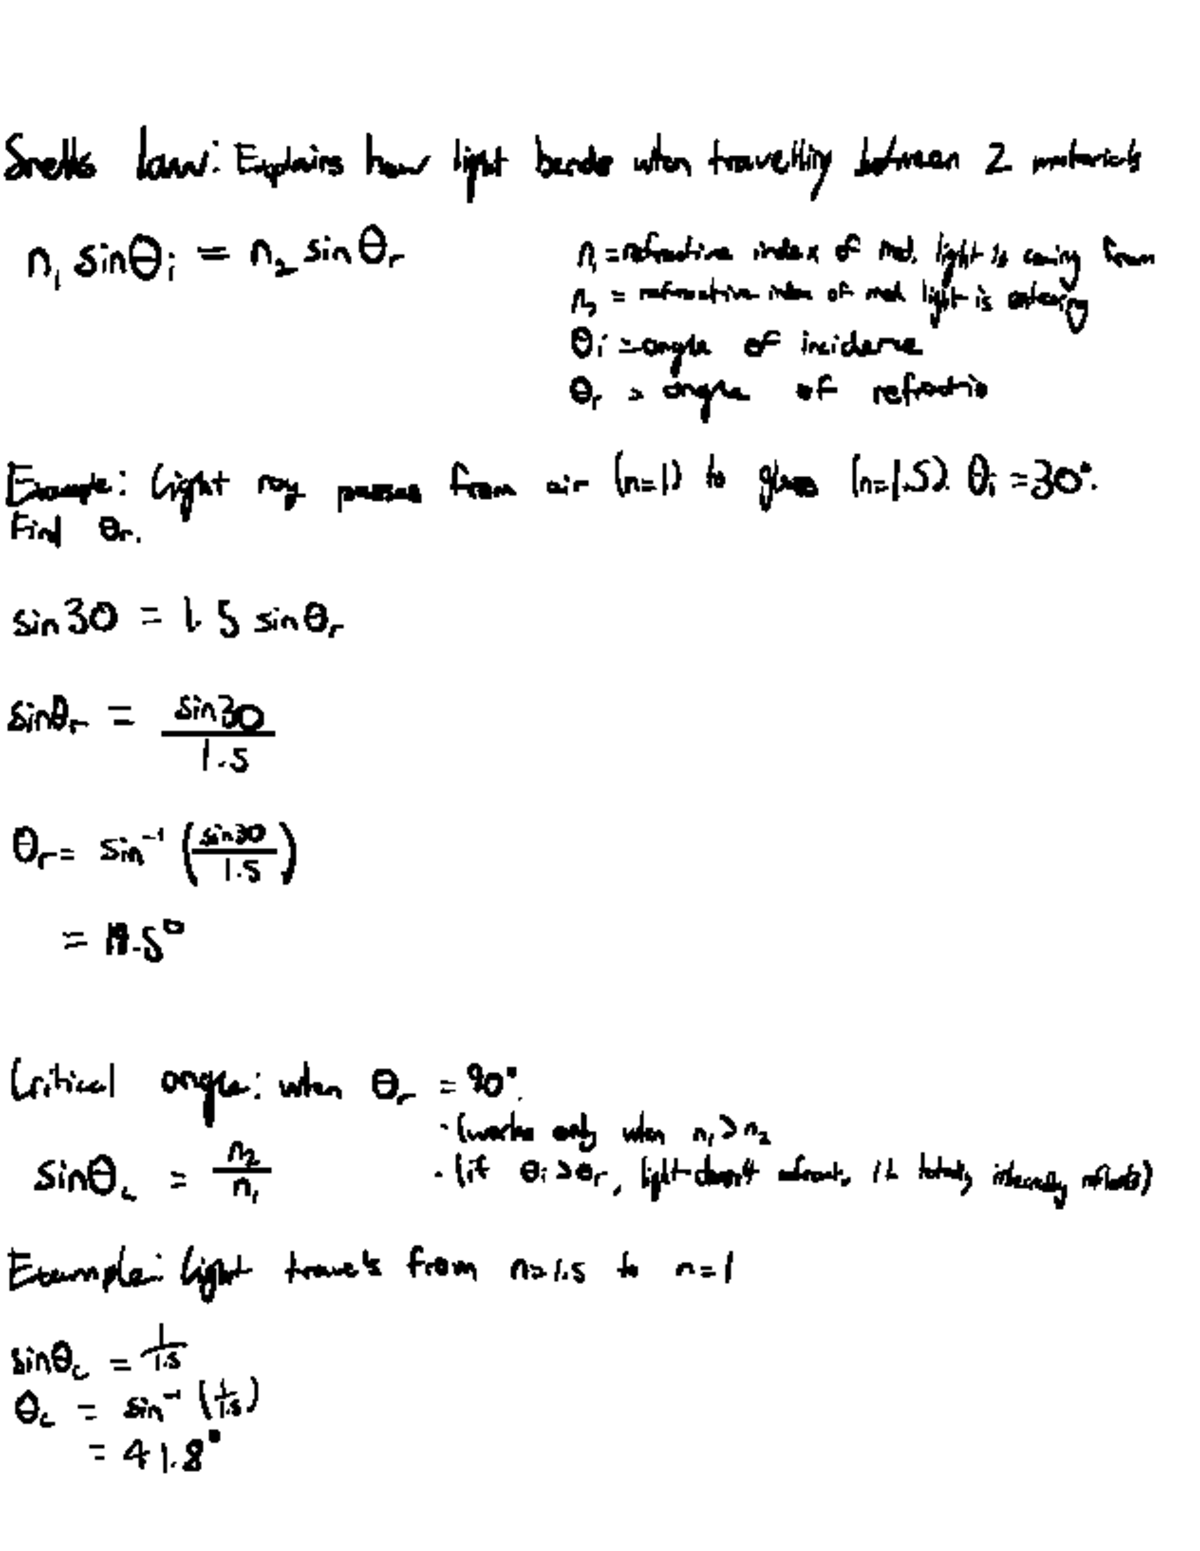 Snells law: Explains how light bends when travelling between 2 materials
n₁ sinθi = n₂ sinθr
n₁ = refractive index of mat. light is coming from
n₂ = refractive index of mat. light is entering
θi = angle of incidence
θr = angle of refractio
Example: Light ray passes from air (n=1) to glass (n=1.5). θi = 30°.
Find θr.
sin30 = 1.5 sinθr
sinθr = sin30 / 1.5
θr = sin⁻¹ (sin30 / 1.5)
= 19.5°
Critical angle: when θr = 90°.
· (works only when n₁ > n₂
sinθc = n₂ / n₁
· (if θi > θr, light doesn't refract, it totally internally reflects)
Example: light travels from n=1.5 to n=1
sinθc = 1 / 1.5
θc = sin⁻¹ (1 / 1.5)
= 41.8°